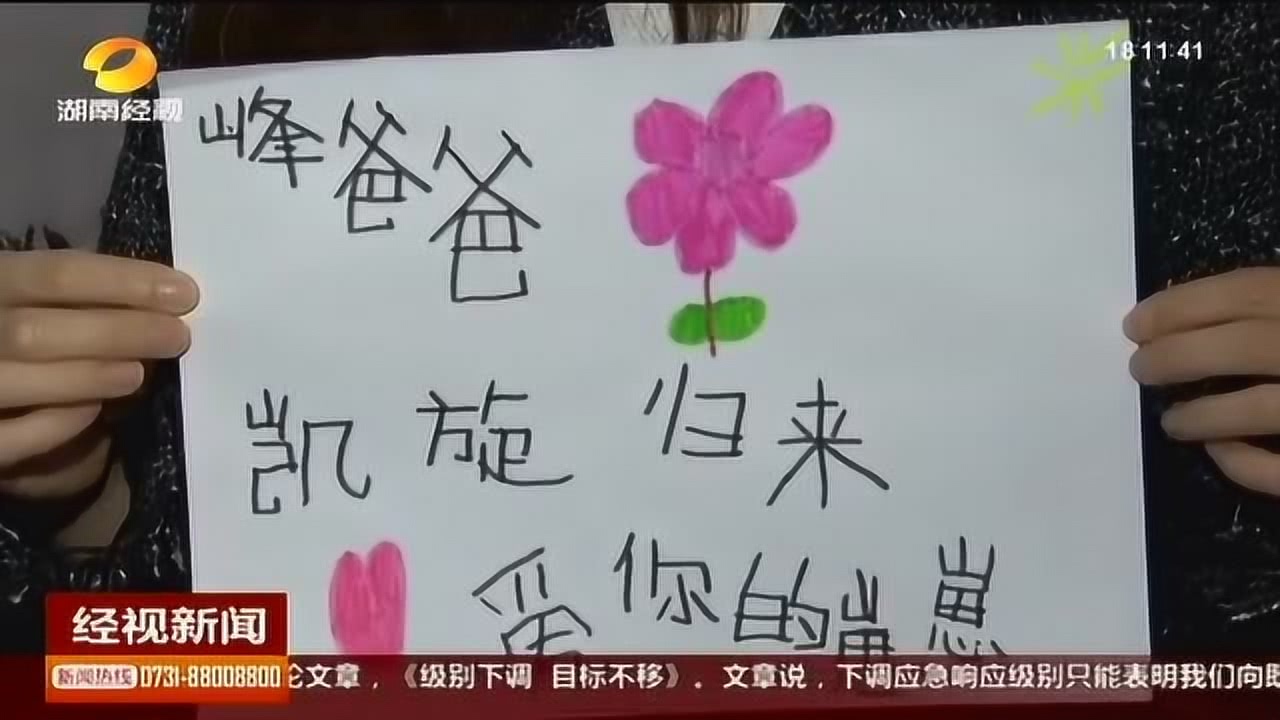 湖南经视
18:11:41
峰爸爸
凯旋归来
爱你的崽崽
经视新闻
新闻热线 0731-88008800
论文章,《级别下调 目标不移》。文章说,下调应急响应级别只能表明我们向既